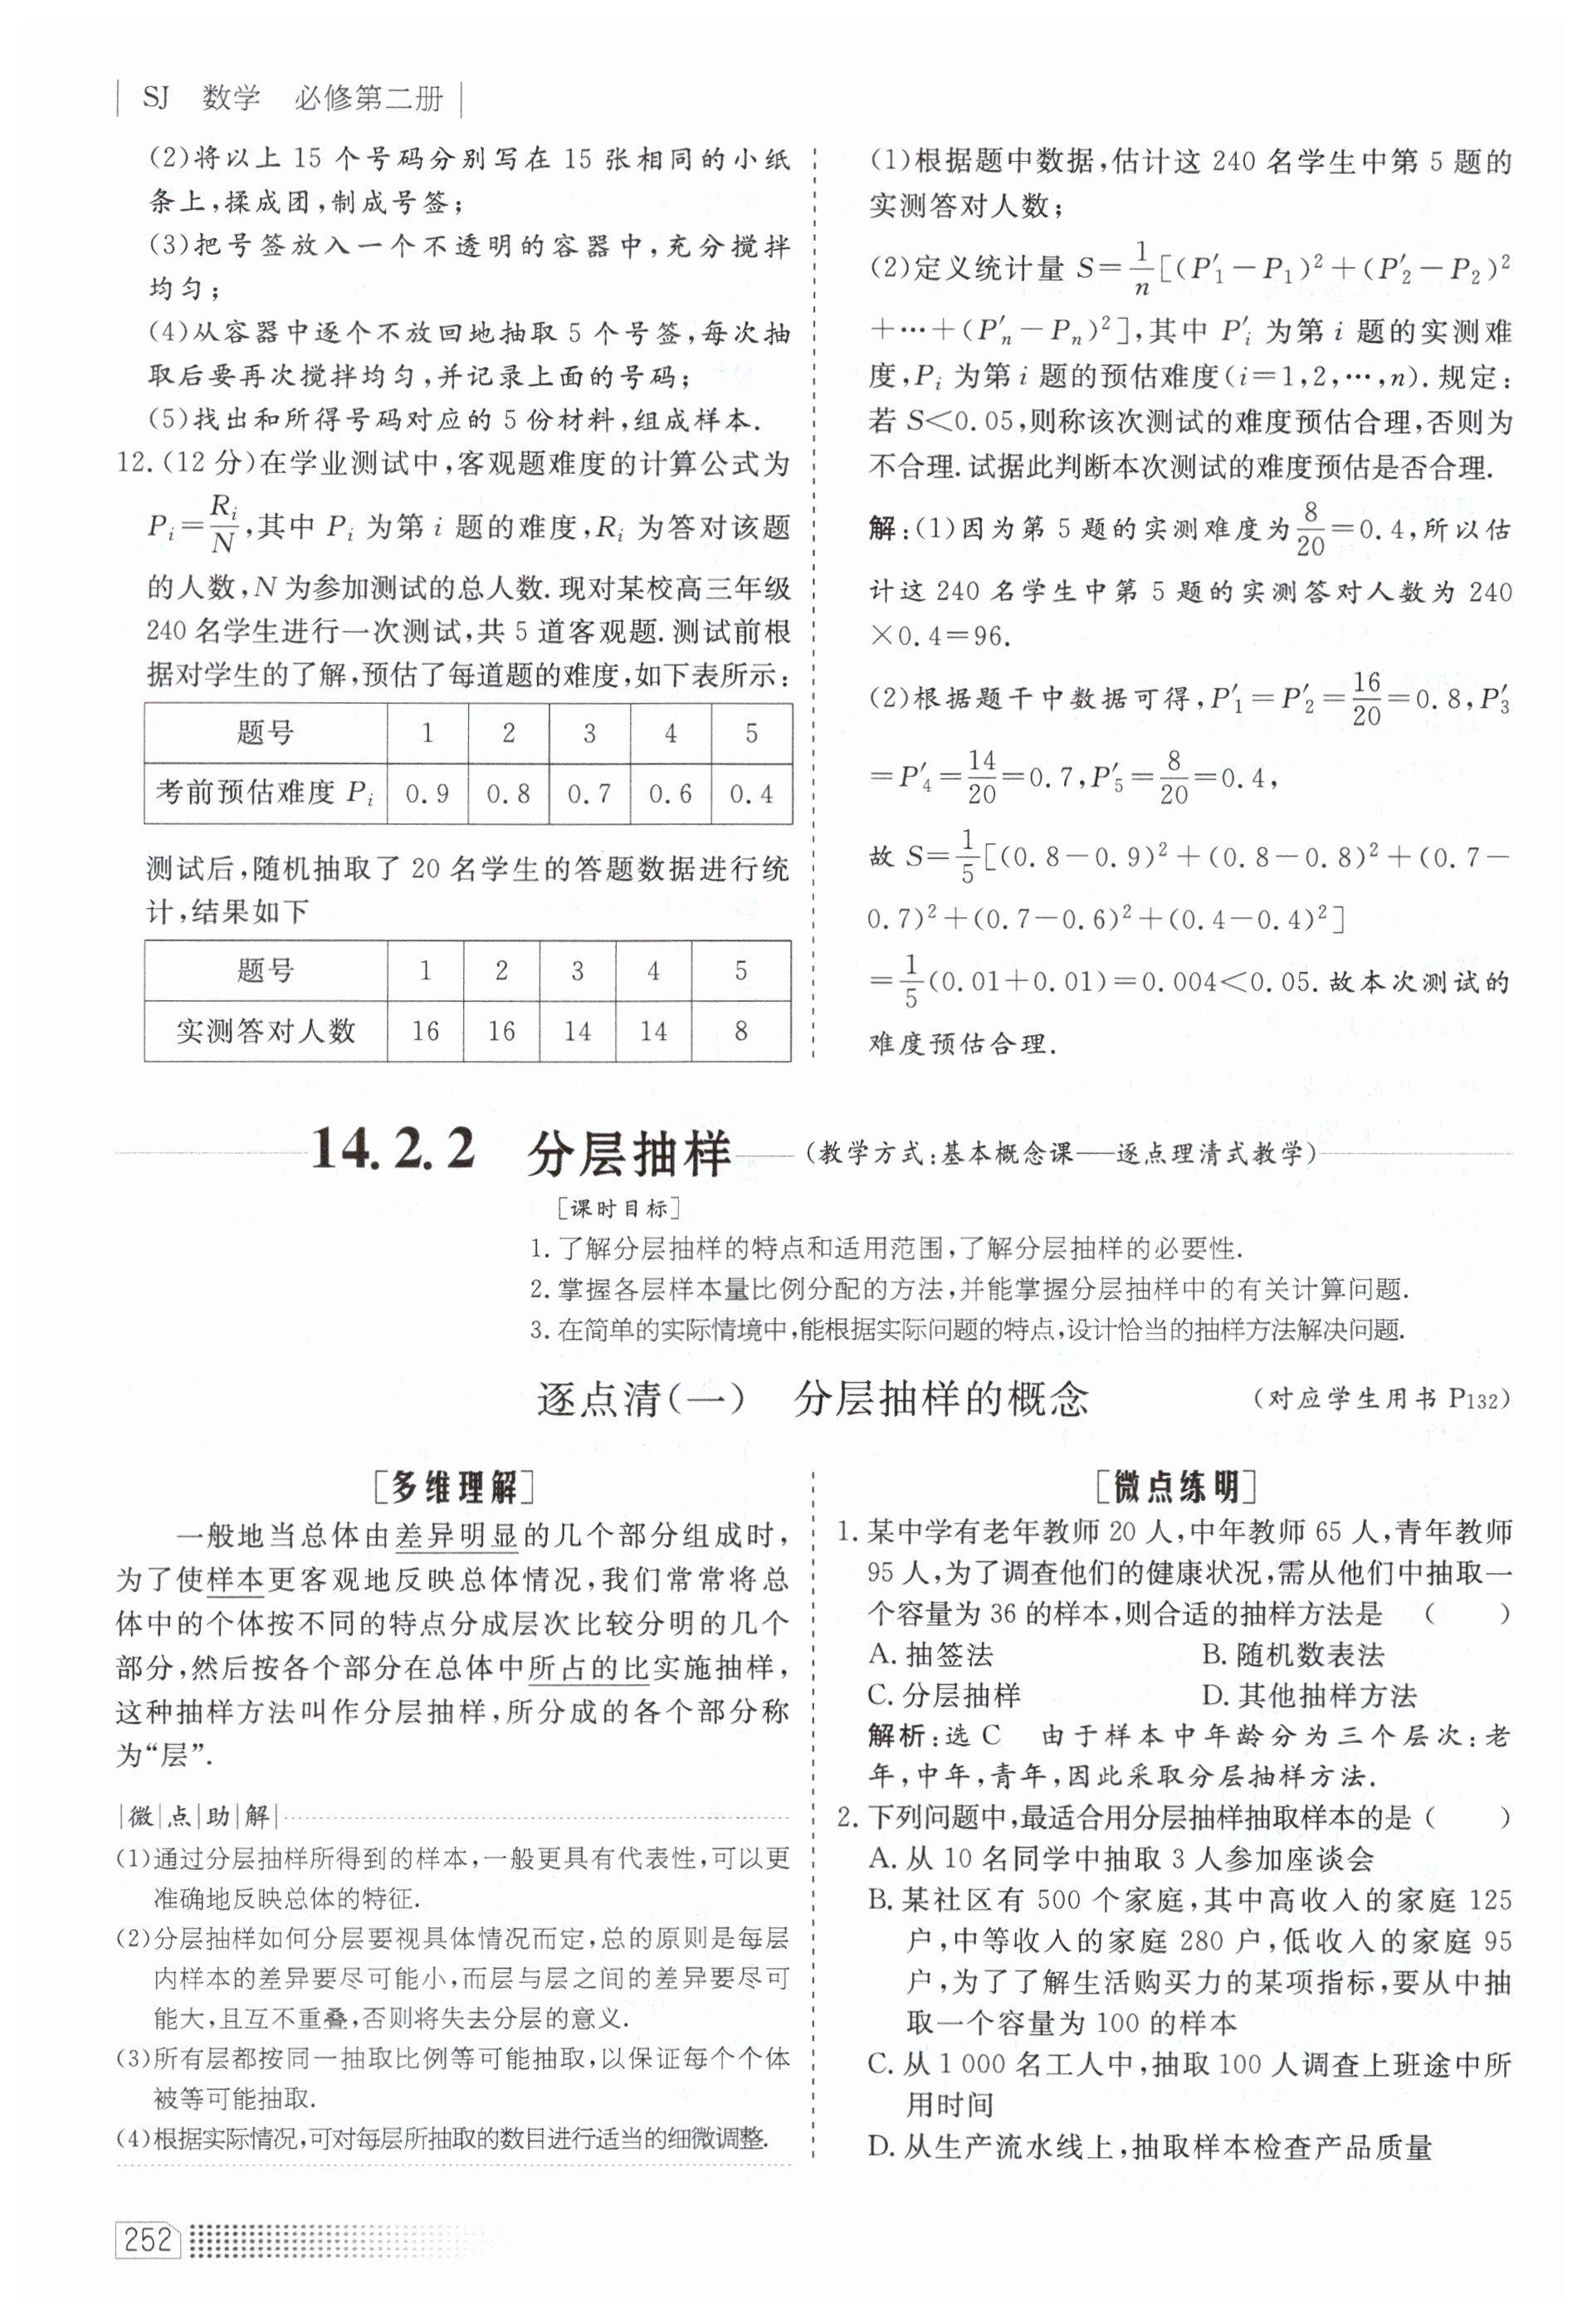 SJ 数学 必修第二册
(2)将以上 15 个号码分别写在 15 张相同的小纸
条上,揉成团,制成号签;
(3)把号签放入一个不透明的容器中,充分搅拌
均匀;
(4)从容器中逐个不放回地抽取 5 个号签,每次抽
取后要再次搅拌均匀,并记录上面的号码;
(5)找出和所得号码对应的 5 份材料,组成样本.
12.(12 分)在学业测试中,客观题难度的计算公式为
P_i=R_i/N,其中 P_i 为第 i 题的难度,R_i 为答对该题
的人数,N 为参加测试的总人数.现对某校高三年级
240 名学生进行一次测试,共 5 道客观题.测试前根
据对学生的了解,预估了每道题的难度,如下表所示:
题号 1 2 3 4 5
考前预估难度 P_i 0.9 0.8 0.7 0.6 0.4
测试后,随机抽取了 20 名学生的答题数据进行统
计,结果如下
题号 1 2 3 4 5
实测答对人数 16 16 14 14 8
(1)根据题中数据,估计这 240 名学生中第 5 题的
实测答对人数;
(2)定义统计量 S=1/n[(P′_1-P_1)²+(P′_2-P_2)²
+…+(P′_n-P_n)²],其中 P′_i 为第 i 题的实测难
度,P_i 为第 i 题的预估难度(i=1,2,…,n).规定:
若 S<0.05,则称该次测试的难度预估合理,否则为
不合理.试据此判断本次测试的难度预估是否合理.
解:(1)因为第 5 题的实测难度为8/20=0.4,所以估
计这 240 名学生中第 5 题的实测答对人数为 240
×0.4=96.
(2)根据题干中数据可得,P′_1=P′_2=16/20=0.8,P′_3
=P′_4=14/20=0.7,P′_5=8/20=0.4,
故 S=1/5[(0.8-0.9)²+(0.8-0.8)²+(0.7-
0.7)²+(0.7-0.6)²+(0.4-0.4)²]
=1/5(0.01+0.01)=0.004<0.05.故本次测试的
难度预估合理.
14.2.2 分层抽样 (教学方式:基本概念课——逐点理清式教学)
[课时目标]
1.了解分层抽样的特点和适用范围,了解分层抽样的必要性.
2.掌握各层样本量比例分配的方法,并能掌握分层抽样中的有关计算问题.
3.在简单的实际情境中,能根据实际问题的特点,设计恰当的抽样方法解决问题.
逐点清(一) 分层抽样的概念 (对应学生用书 P132)
[多维理解]
一般地当总体由差异明显的几个部分组成时,
为了使样本更客观地反映总体情况,我们常常将总
体中的个体按不同的特点分成层次比较分明的几个
部分,然后按各个部分在总体中所占的比实施抽样,
这种抽样方法叫作分层抽样,所分成的各个部分称
为“层”.
|微|点|助|解|
(1)通过分层抽样所得到的样本,一般更具有代表性,可以更
准确地反映总体的特征.
(2)分层抽样如何分层要视具体情况而定,总的原则是每层
内样本的差异要尽可能小,而层与层之间的差异要尽可
能大,且互不重叠,否则将失去分层的意义.
(3)所有层都按同一抽取比例等可能抽取,以保证每个个体
被等可能抽取.
(4)根据实际情况,可对每层所抽取的数目进行适当的细微调整.
[微点练明]
1.某中学有老年教师 20 人,中年教师 65 人,青年教师
95 人,为了调查他们的健康状况,需从他们中抽取一
个容量为 36 的样本,则合适的抽样方法是 ( )
A.抽签法 B.随机数表法
C.分层抽样 D.其他抽样方法
解析:选 C 由于样本中年龄分为三个层次:老
年,中年,青年,因此采取分层抽样方法.
2.下列问题中,最适合用分层抽样抽取样本的是 ( )
A.从 10 名同学中抽取 3 人参加座谈会
B.某社区有 500 个家庭,其中高收入的家庭 125
户,中等收入的家庭 280 户,低收入的家庭 95
户,为了了解生活购买力的某项指标,要从中抽
取一个容量为 100 的样本
C.从 1 000 名工人中,抽取 100 人调查上班途中所
用时间
D.从生产流水线上,抽取样本检查产品质量
252